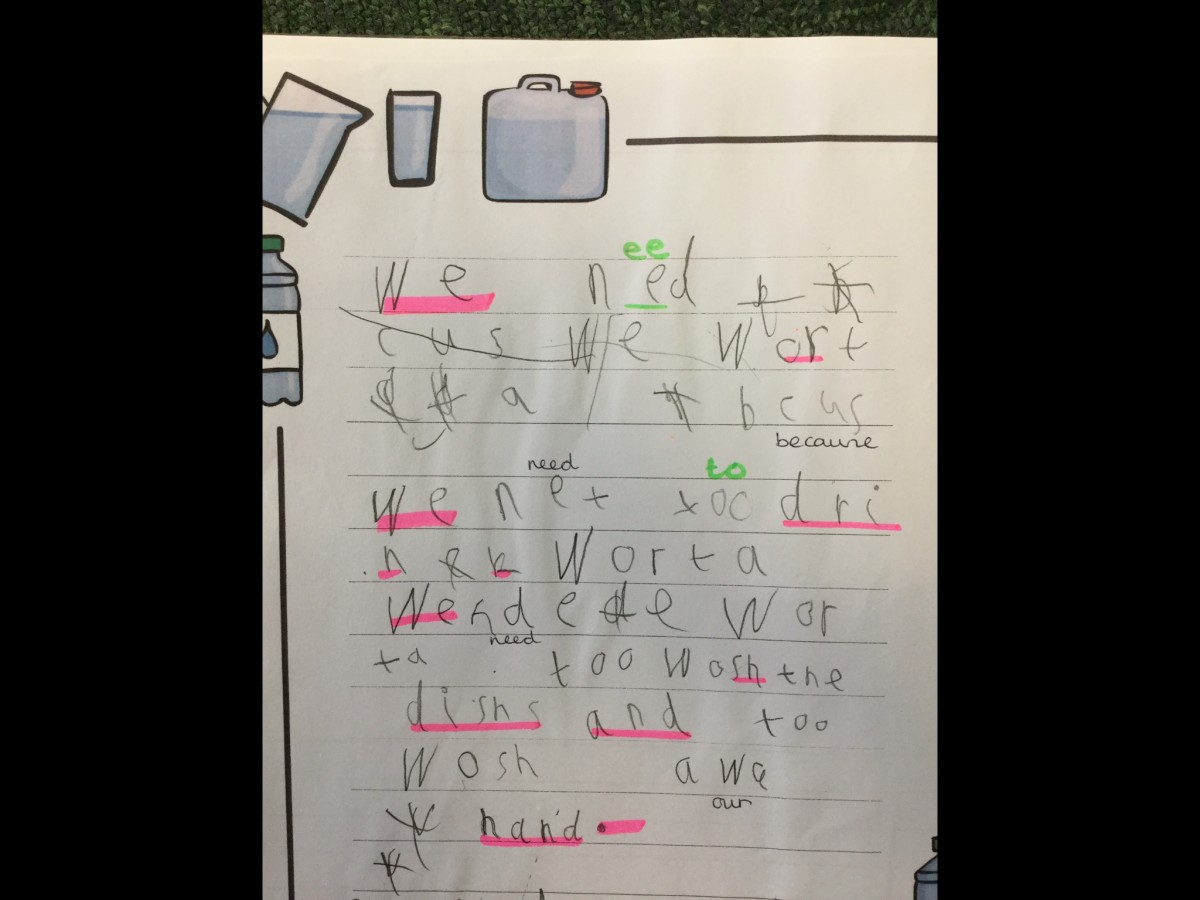 ee
We ned
cus We Wort
a bcus
because
need to
We net too dri
nk Worta
We nde e Wor
need
ta too Wosh the
dishs and too
Wosh awa
our
hand.